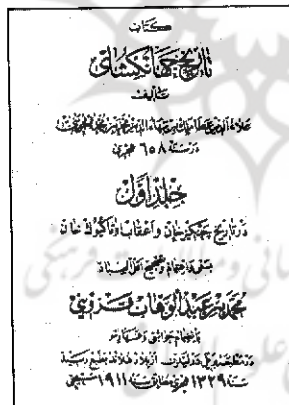 کتاب
تاریخ جهانگشای
تألیف
علاء الدین عطا ملک بن بهاء الدین محمد بن محمد الجوینی
در سنه ۶۵۸ هجری
جلد اول
در تاریخ چنگیز خان و اعقاب او تا کیوک خان
بسعی و اهتمام و تصحیح
محمد بن عبد الوهاب قزوینی
در مطبعه بریل در لیدن از بلاد هلاند بطبع رسید
سنه ۱۳۲۹ هجری مطابق سنه ۱۹۱۱ مسیحی